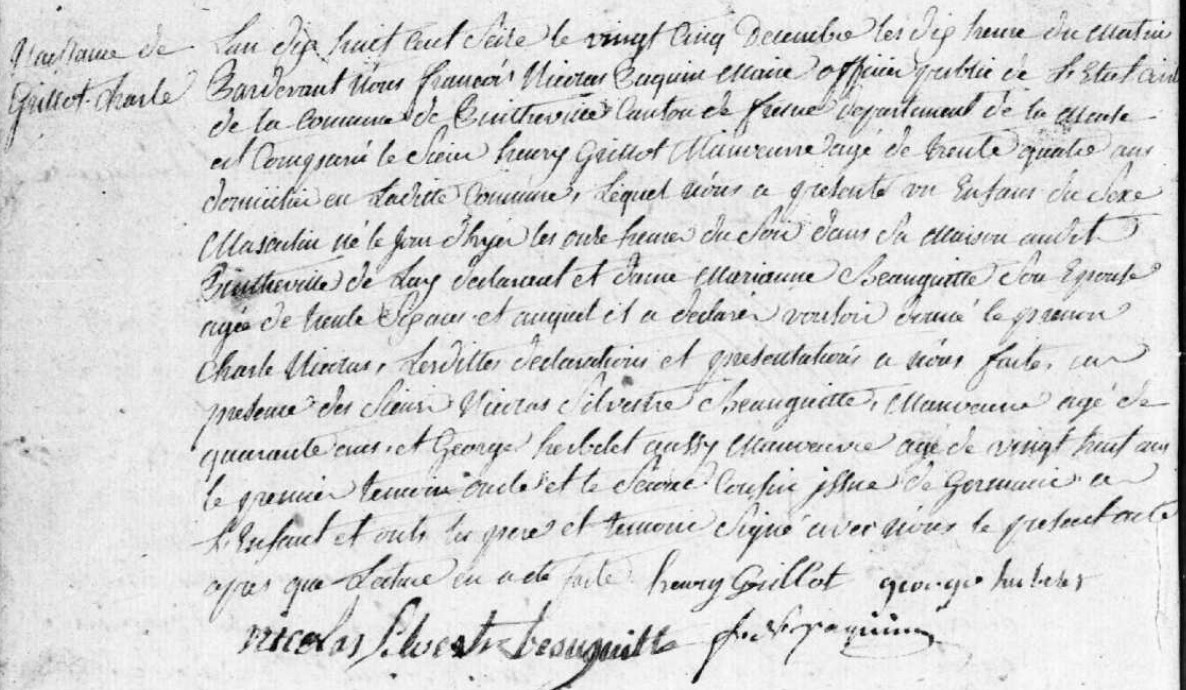 Naissance de
Grillot Charle
L'an dix huit cent Seize le vingt Cinq Decembre les dix heure du Matin
Pardevant Nous françois Nicolas Paquin Maire officier public de L'Etat Civil
de la Commune de Butheville Canton de fresne departement de la Meuse
est Comparu le Sieur henry Grillot Manœuvre agé de trente quatre ans
domicilié en Laditte Commune, Lequel nous a presenté un Enfant du Sexe
Masculin né le jour d'hyer les onze heures du Soir dans Sa Maison audit
Butheville de Luy declarant et dame Marianne Beauguitte Son Epouse
agée de trente Six ans et auquel il a declaré vouloir donné le prenom
Charle Nicolas, Lesdittes declarations et presentations a nous faite, en
presence des Sieurs Nicolas Silvestre Beauguitte, Manœuvre agé de
quarante ans, et George herbelet aussy Manœuvre agé de vingt huit ans
le premier temoin oncle et le Second Cousin issue de Germain a
L'Enfant et onts les pere et temoins Signé avec nous le present acte
apres que Lecture en a eté faite henry Grillot george herbelet
nicolas Silvestre beauguitte f. N. paquin